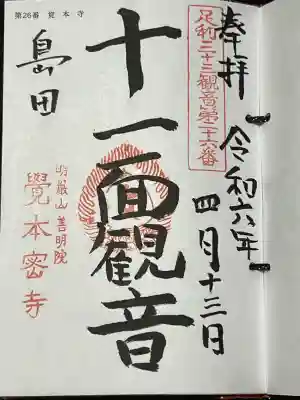 奉拝
令和六年
四月十三日
足利三十三観音第二十六番
十一面観音
第26番 覚本寺
島田
明厳山 善明院
覺本密寺